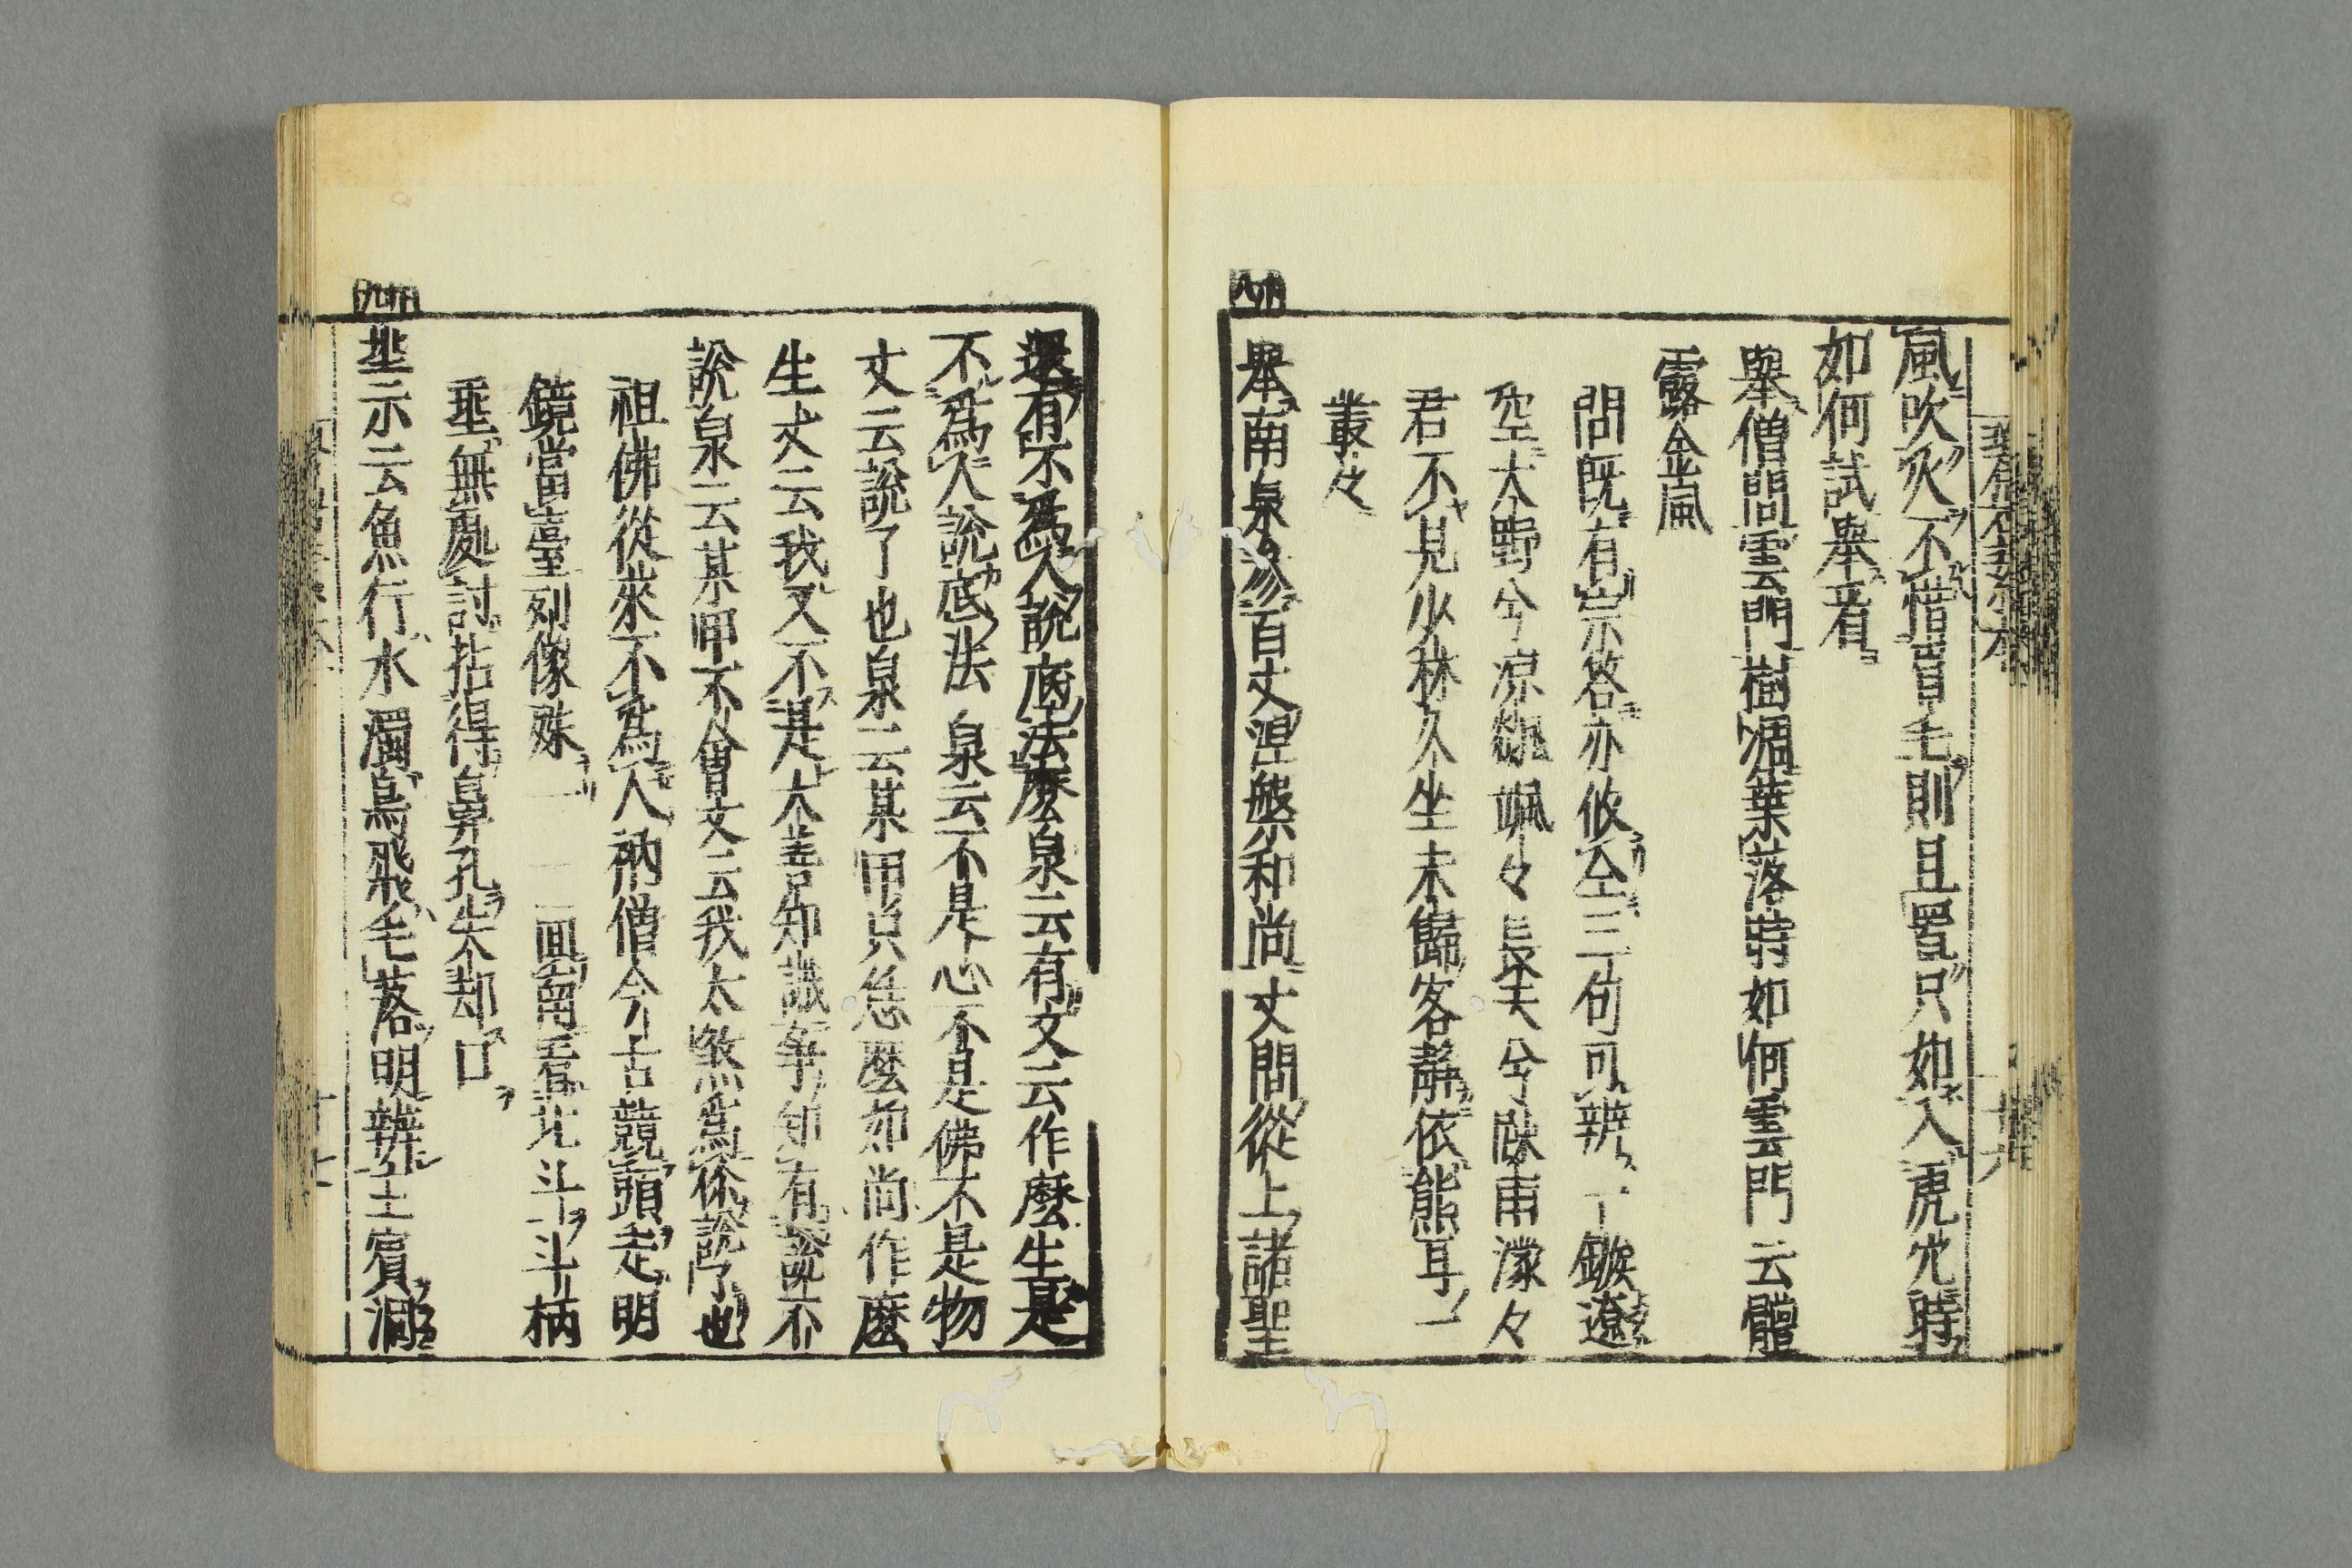 風吹火不惜眉毛則且置只如入虎穴時
如何試擧看
擧僧問雲門樹凋葉落時如何雲門云體
露金風
問既有宗答亦攸同三句可辨一鏃遼
空大野兮凉飇颯々長天兮踈雨濛々
君不見少林久坐未歸客靜依熊耳一
叢々
擧南泉參百丈涅槃和尚丈問從上諸聖
還有不爲人說底法麼泉云有丈云作麼生是
不爲人說底法泉云不是心不是佛不是物
丈云說了也泉云某甲只恁麼和尚作麼
生丈云我又不是大善知識爭知有說不
說泉云某甲不會丈云我太煞爲你說了也
祖佛從來不爲人衲僧今古競頭走明
鏡當臺列像殊一一面南看北斗斗柄
垂無處討拈得鼻孔失却口
垂示云魚行水濁鳥飛毛落明辨主賓洞